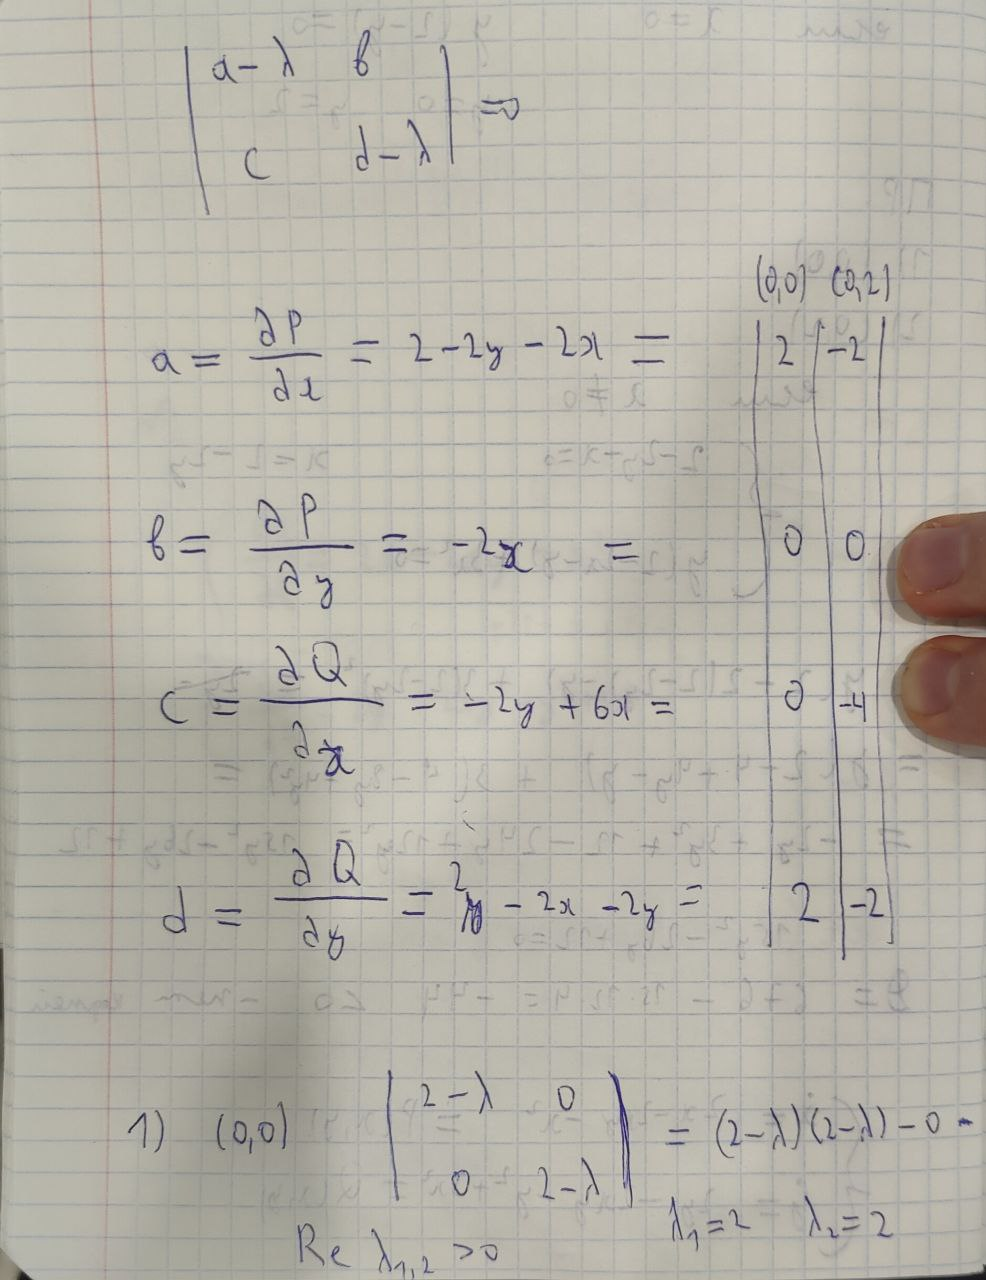 | a-λ в |
| c d-λ | = 0
(0,0) (0,2)
a = ∂P/∂x = 2 - 2y - 2x = | 2 | -2 |
в = ∂P/∂y = -2x = | 0 | 0 |
c = ∂Q/∂x = -2y + 6x = | 0 | -4 |
d = ∂Q/∂y = 2 - 2x - 2y = | 2 | -2 |
1) (0,0) | 2-λ 0 | = (2-λ)(2-λ) - 0 -
| 0 2-λ |
λ₁ = 2 λ₂ = 2
Re λ₁,₂ > 0